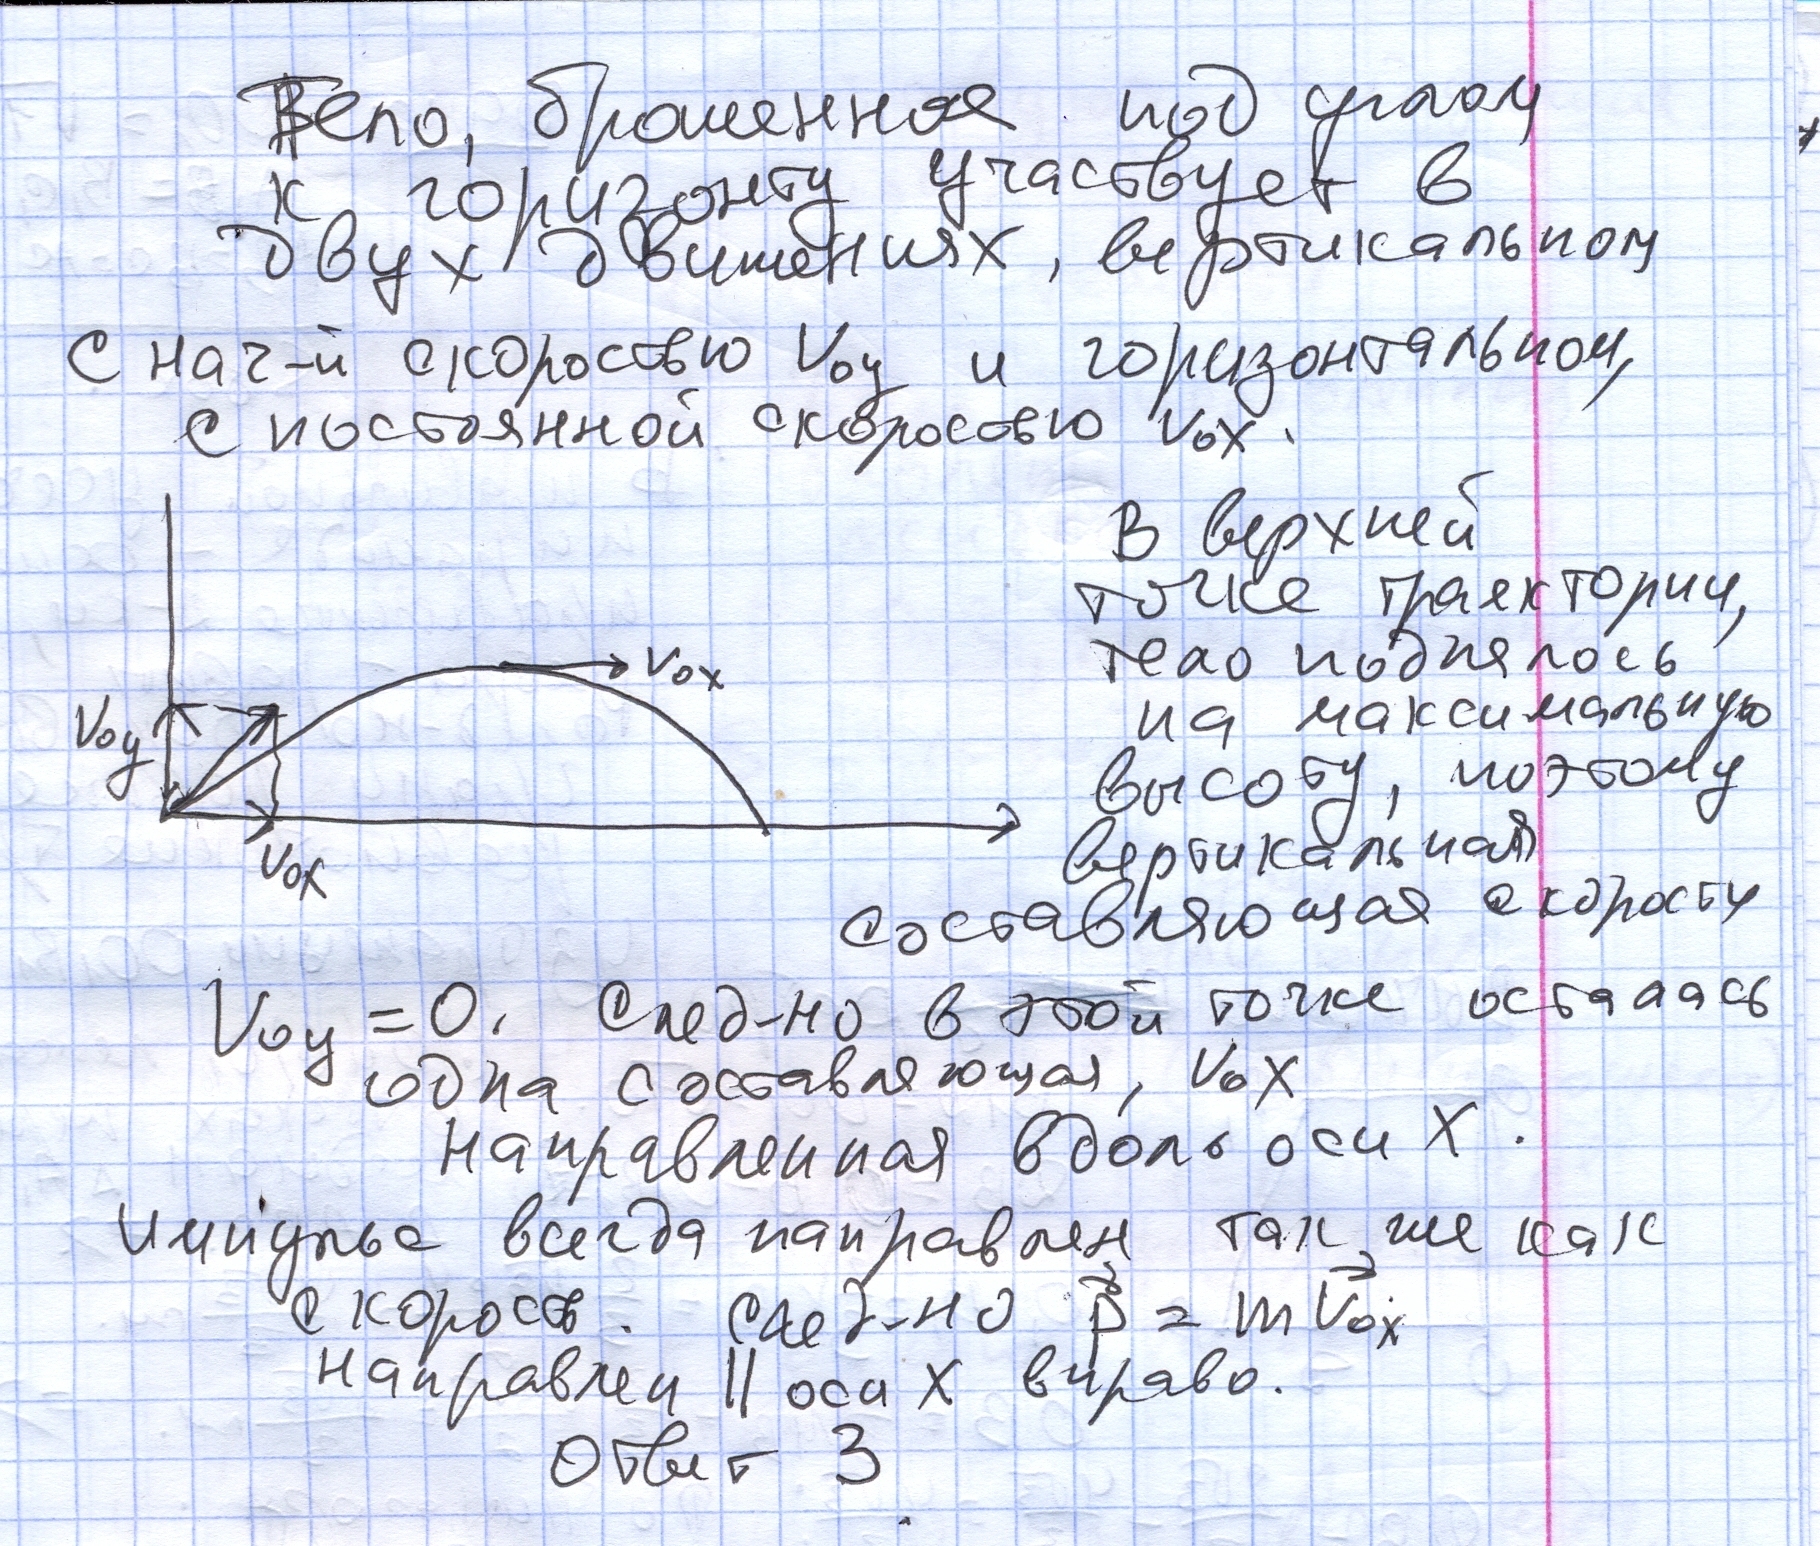 Тело, брошенное под углом
к горизонту участвует в
двух движениях, вертикальном
с нач-й скоростью V₀y и горизонтальном,
с постоянной скоростью V₀x.
В верхней
точке траектории,
тело поднялось
на максимальную
высоту, поэтому
вертикальная
составляющая скорости
V₀x
V₀y
V₀x
V₀y = 0. След-но в этой точке осталась
одна составляющая, V₀x
направленная вдоль оси X.
Импульс всегда направлен так же как
скорость. след-но p⃗ = mV⃗₀x
направлен || оси X вправо.
Ответ 3